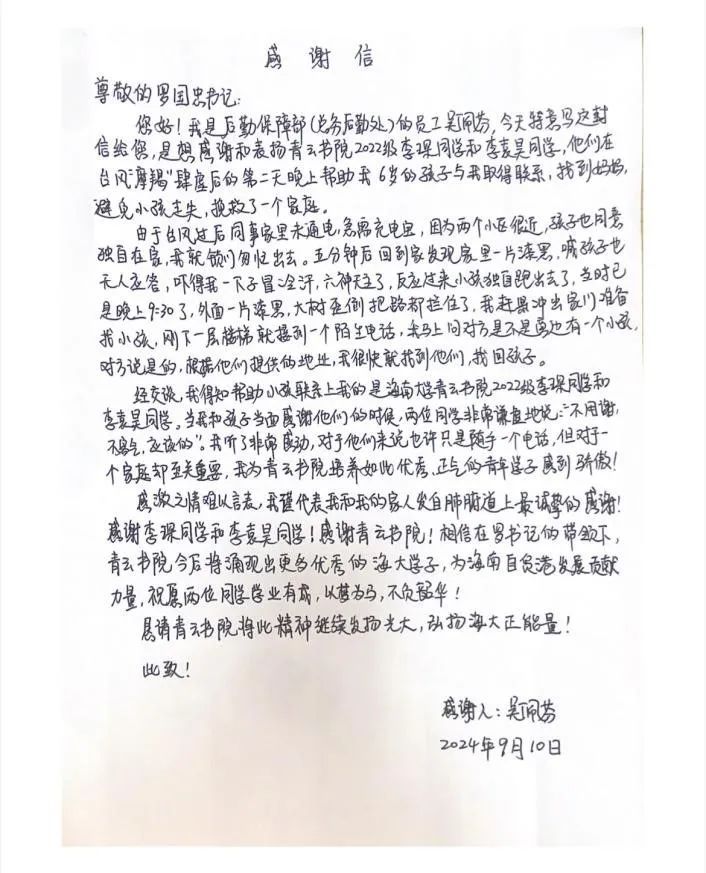 感谢信
尊敬的罗国忠书记:
您好!我是后勤保障部(总务后勤处)的员工吴佩芬,今天特意写这封
信给您,是想感谢和表扬青云书院2022级李琛同学和李袁昊同学,他们在
台风“摩羯”肆虐后的第二天晚上帮助我6岁的孩子与我取得联系,找到妈妈,
避免小孩走失,挽救了一个家庭。
由于台风过后同事家里未通电,急需充电宝,因为两个小区很近,孩子也同意
独自在家,我就锁门匆忙出去。五分钟后回到家发现家里一片漆黑,喊孩子也
无人应答,吓得我一下子冒冷汗,六神无主了,反应过来小孩独自跑出去了,当时已
是晚上9:30了,外面一片漆黑,大树歪倒把路都拦住了,我赶紧冲出家门准备
找小孩,刚下一层楼梯就接到一个陌生电话,我马上问对方是不是身边有一个小孩,
对方说是的,根据他们提供的地址,我很快就找到他们,找回孩子。
经交谈,我得知帮助小孩联系上我的是海南大学青云书院2022级李琛同学和
李袁昊同学。当我和孩子当面感谢他们的时候,两位同学非常谦虚地说:“不用谢,
不客气,应该的”。我听了非常感动,对于他们来说也许只是随手一个电话,但对于一
个家庭却至关重要,我为青云书院培养如此优秀、正气的青年学子感到骄傲!
感激之情难以言表,我谨代表我和我的家人发自肺腑道上最诚挚的感谢!
感谢李琛同学和李袁昊同学!感谢青云书院!相信在罗书记的带领下,
青云书院今后将涌现出更多优秀的海大学子,为海南自贸港发展贡献
力量,祝愿两位同学学业有成,以梦为马,不负韶华!
恳请青云书院将此精神继续发扬光大,弘扬海大正能量!
此致!
感谢人:吴佩芬
2024年9月10日